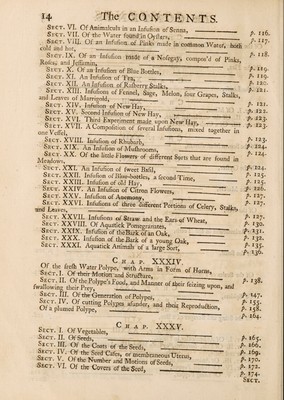 14 The CONTENTS.
SECT. VI. Of Animalcula in an Infusion of Senna, p. 116.
SECT. VII. Of the Water found in Oysters, p. 117.
SECT. VIII. Of an Infusion of Pinks made in common Water, both
cold and hot, p. 118.
SECT. IX. Of an Infusion made of a Nosegay, compos'd of Pinks,
Roses, and Jessamin, p. 119.
SECT. X. Of an Infusion of Blue Bottles, p. 119.
SECT. XI. An Infusion of Tea, p. 120.
SECT. XII. An Infusion of Rasberry Stalks, p. 121.
SECT. XIII. Infusions of Fennel, Sage, Melon, sour Grapes, Stalks,
and Leaves of Marrigold, p. 121.
SECT. XIV. Infusion of New Hay, p. 221.
SECT. XV. Second Infusion of New Hay, p. 222.
SECT. XVI. Third Experiment made upon New Hay, p. 223.
SECT. XVII. A Composition of several Infusions, mixed together in
one Vessel, p. 123.
SECT. XVIII. Infusion of Rhubarb, p. 124.
SECT. XIX. An Infusion of Mushrooms,
SECT. XX. Of the little Flowers of different Sorts that are found in
Meadows, p. 124.
SECT. XXI. An Infusion of sweet Basil,
SECT. XXII. Infusion of Blue-bottles, a second Time,
SECT. XXIII. Infusion of old Hay,
SECT. XXIV. An Infusion of Citron Flowers,
SECT. XXV. Infusion of Anemony, p. 127.
SECT. XXVI. Infusions of three different Portions of Celery, Stalks,
and Leaves, p. 127.
SECT. XXVII. Infusions of Straw and the Ears of Wheat, p. 130.
SECT. XXVIII. Of Aquatick Pomegranates, p. 131.
SECT. XXIX. Infusion of the Bark of an Oak, p. 132.
SECT. XXX. Infusion of the Bark of a young Oak, p. 135.
SECT. XXXI. Aquatick Animals of a large Sort, p. 136.
CHAP. XXXIV.
Of the fresh Water Polype, with Arms in Form of Horns,
SECT. I. Of their Motion and Structure, p. 138.
SECT. II. Of the Polype's Food, and Manner of their seizing upon, and
swallowing their Prey, p. 147.
SECT. III. Of the Generation of Polypes, p. 155.
SECT. IV. Of cutting Polypes asunder, and their Reproduction, p. 158.
Of a plumed Polype, p. 164.
CHAP. XXXV.
SECT. I. Of Vegetables, p. 165.
SECT. II. Of Seeds, p. 166.
SECT. III. Of the Coats of the Seeds, p. 169.
SECT. IV. Of the Seed Cases, or membraneous Uterus, p. 170.
SECT. V. Of the Number and Motions of Seeds, p. 172.
SECT. VI. Of the Covers of the Seed, p. 174.
SECT.